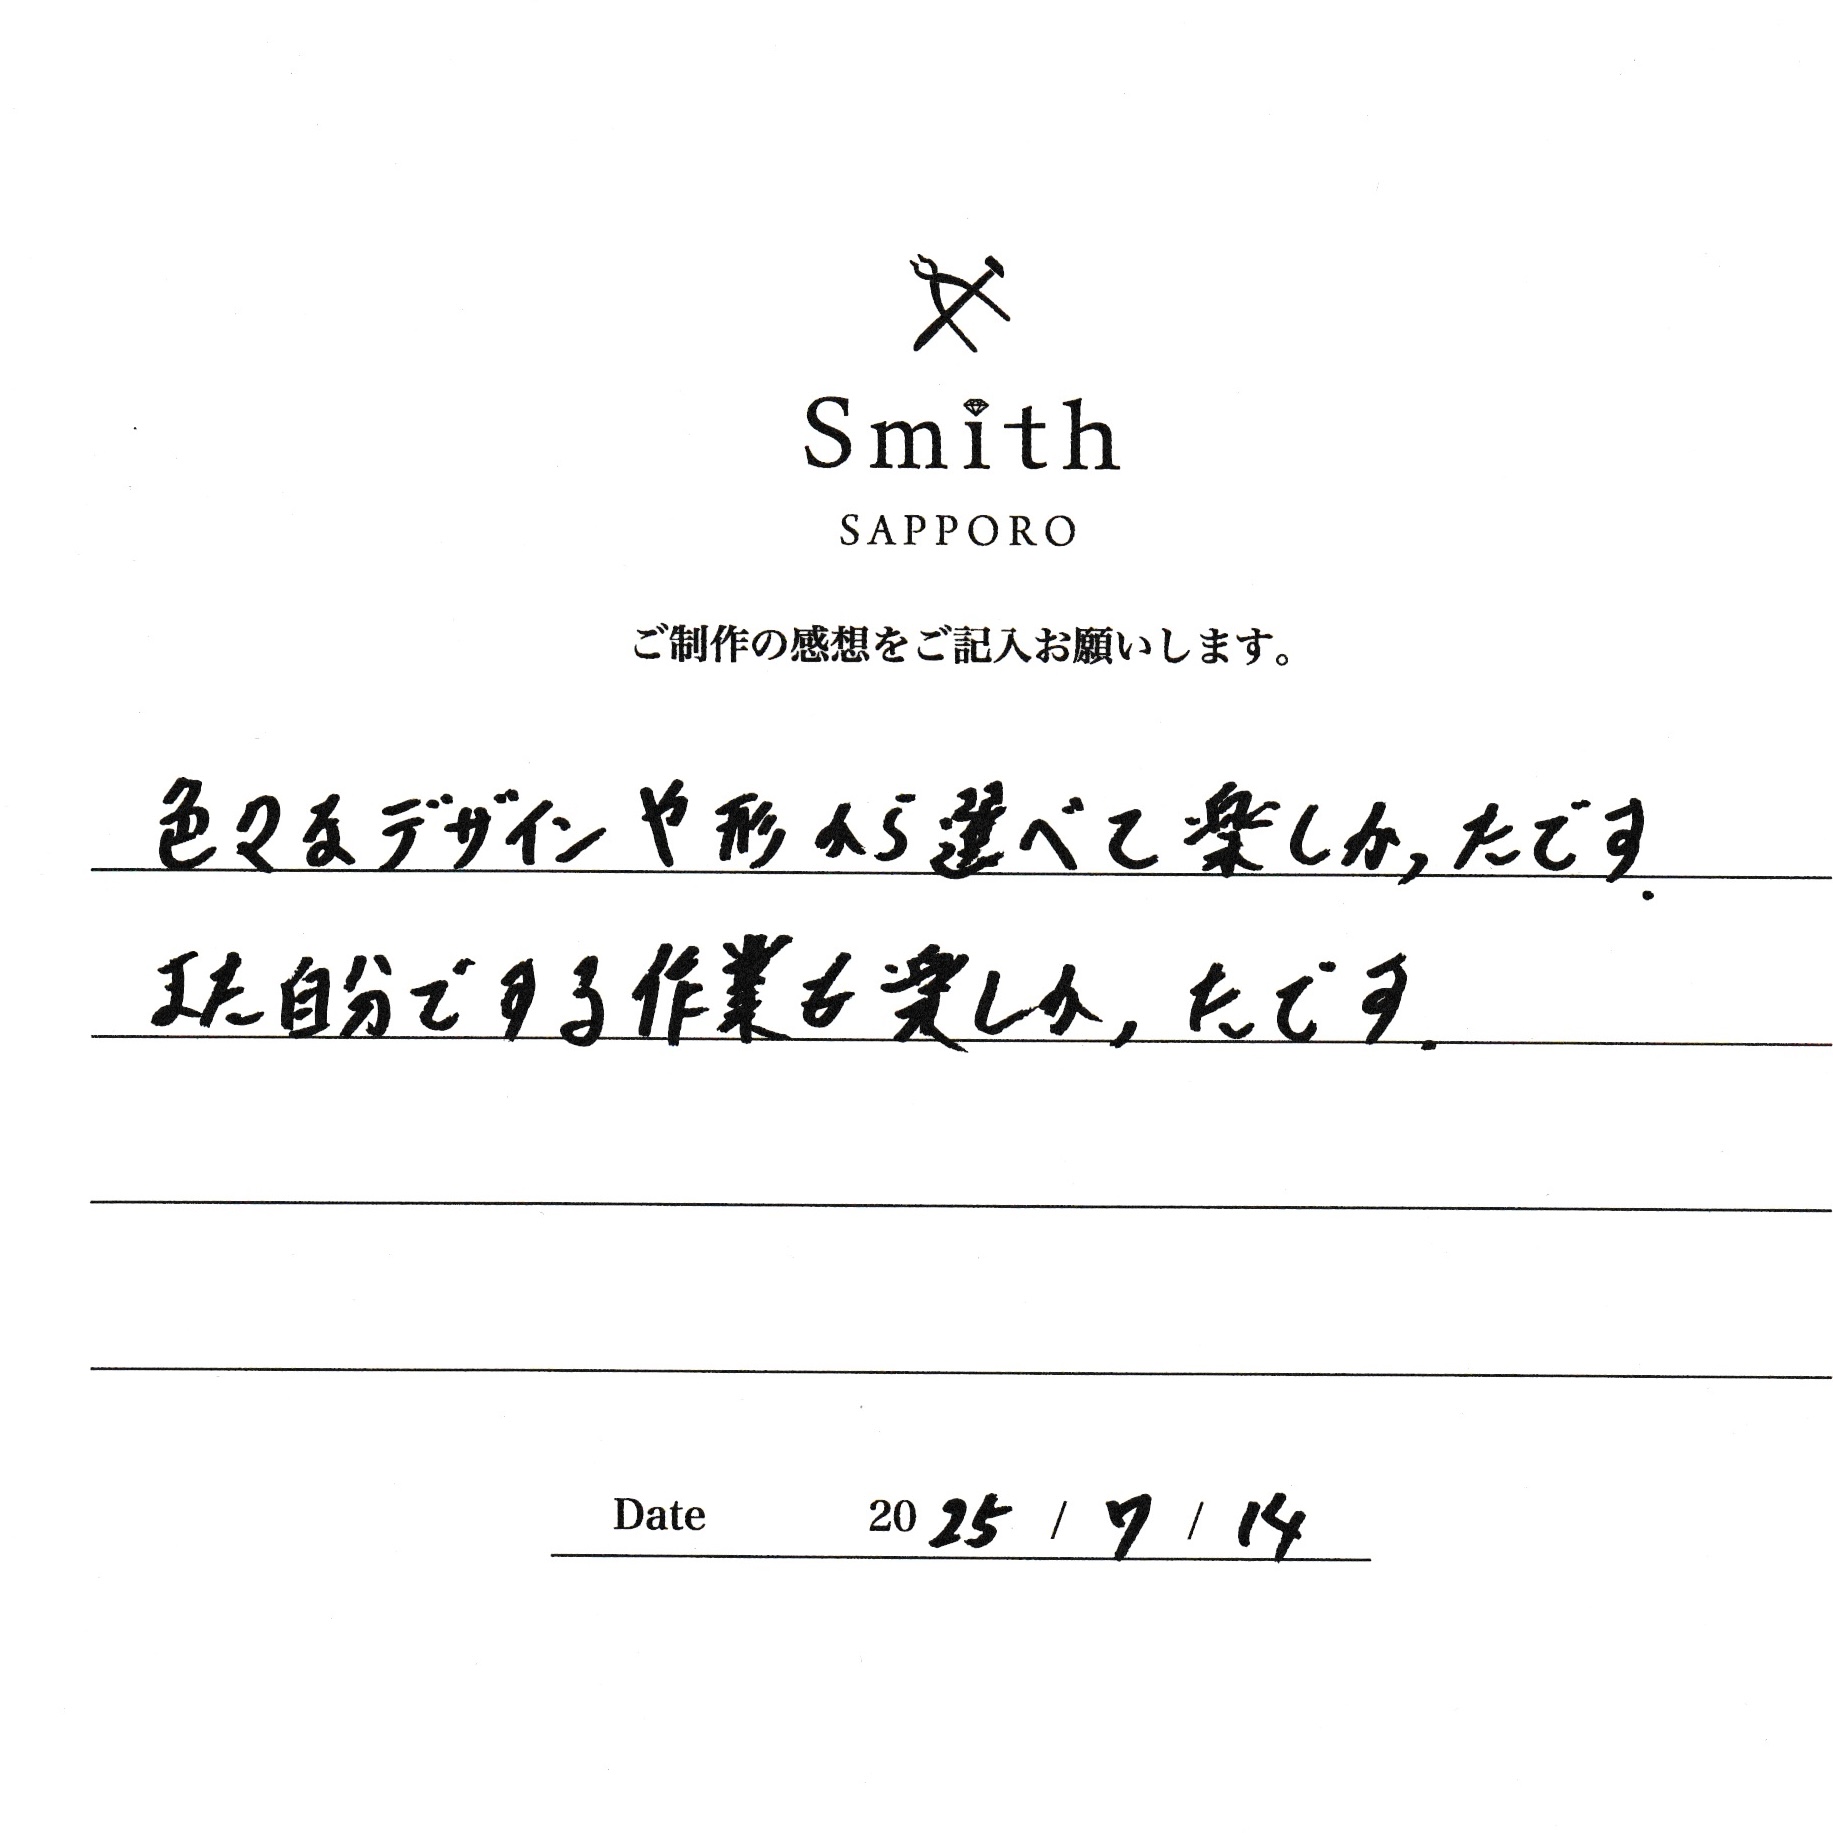 Smith
SAPPORO
ご制作の感想をご記入お願いします。
色々なデザインや形から選べて楽しかったです.
また自分でする作業も楽しかったです.
Date 2025 / 7 / 14